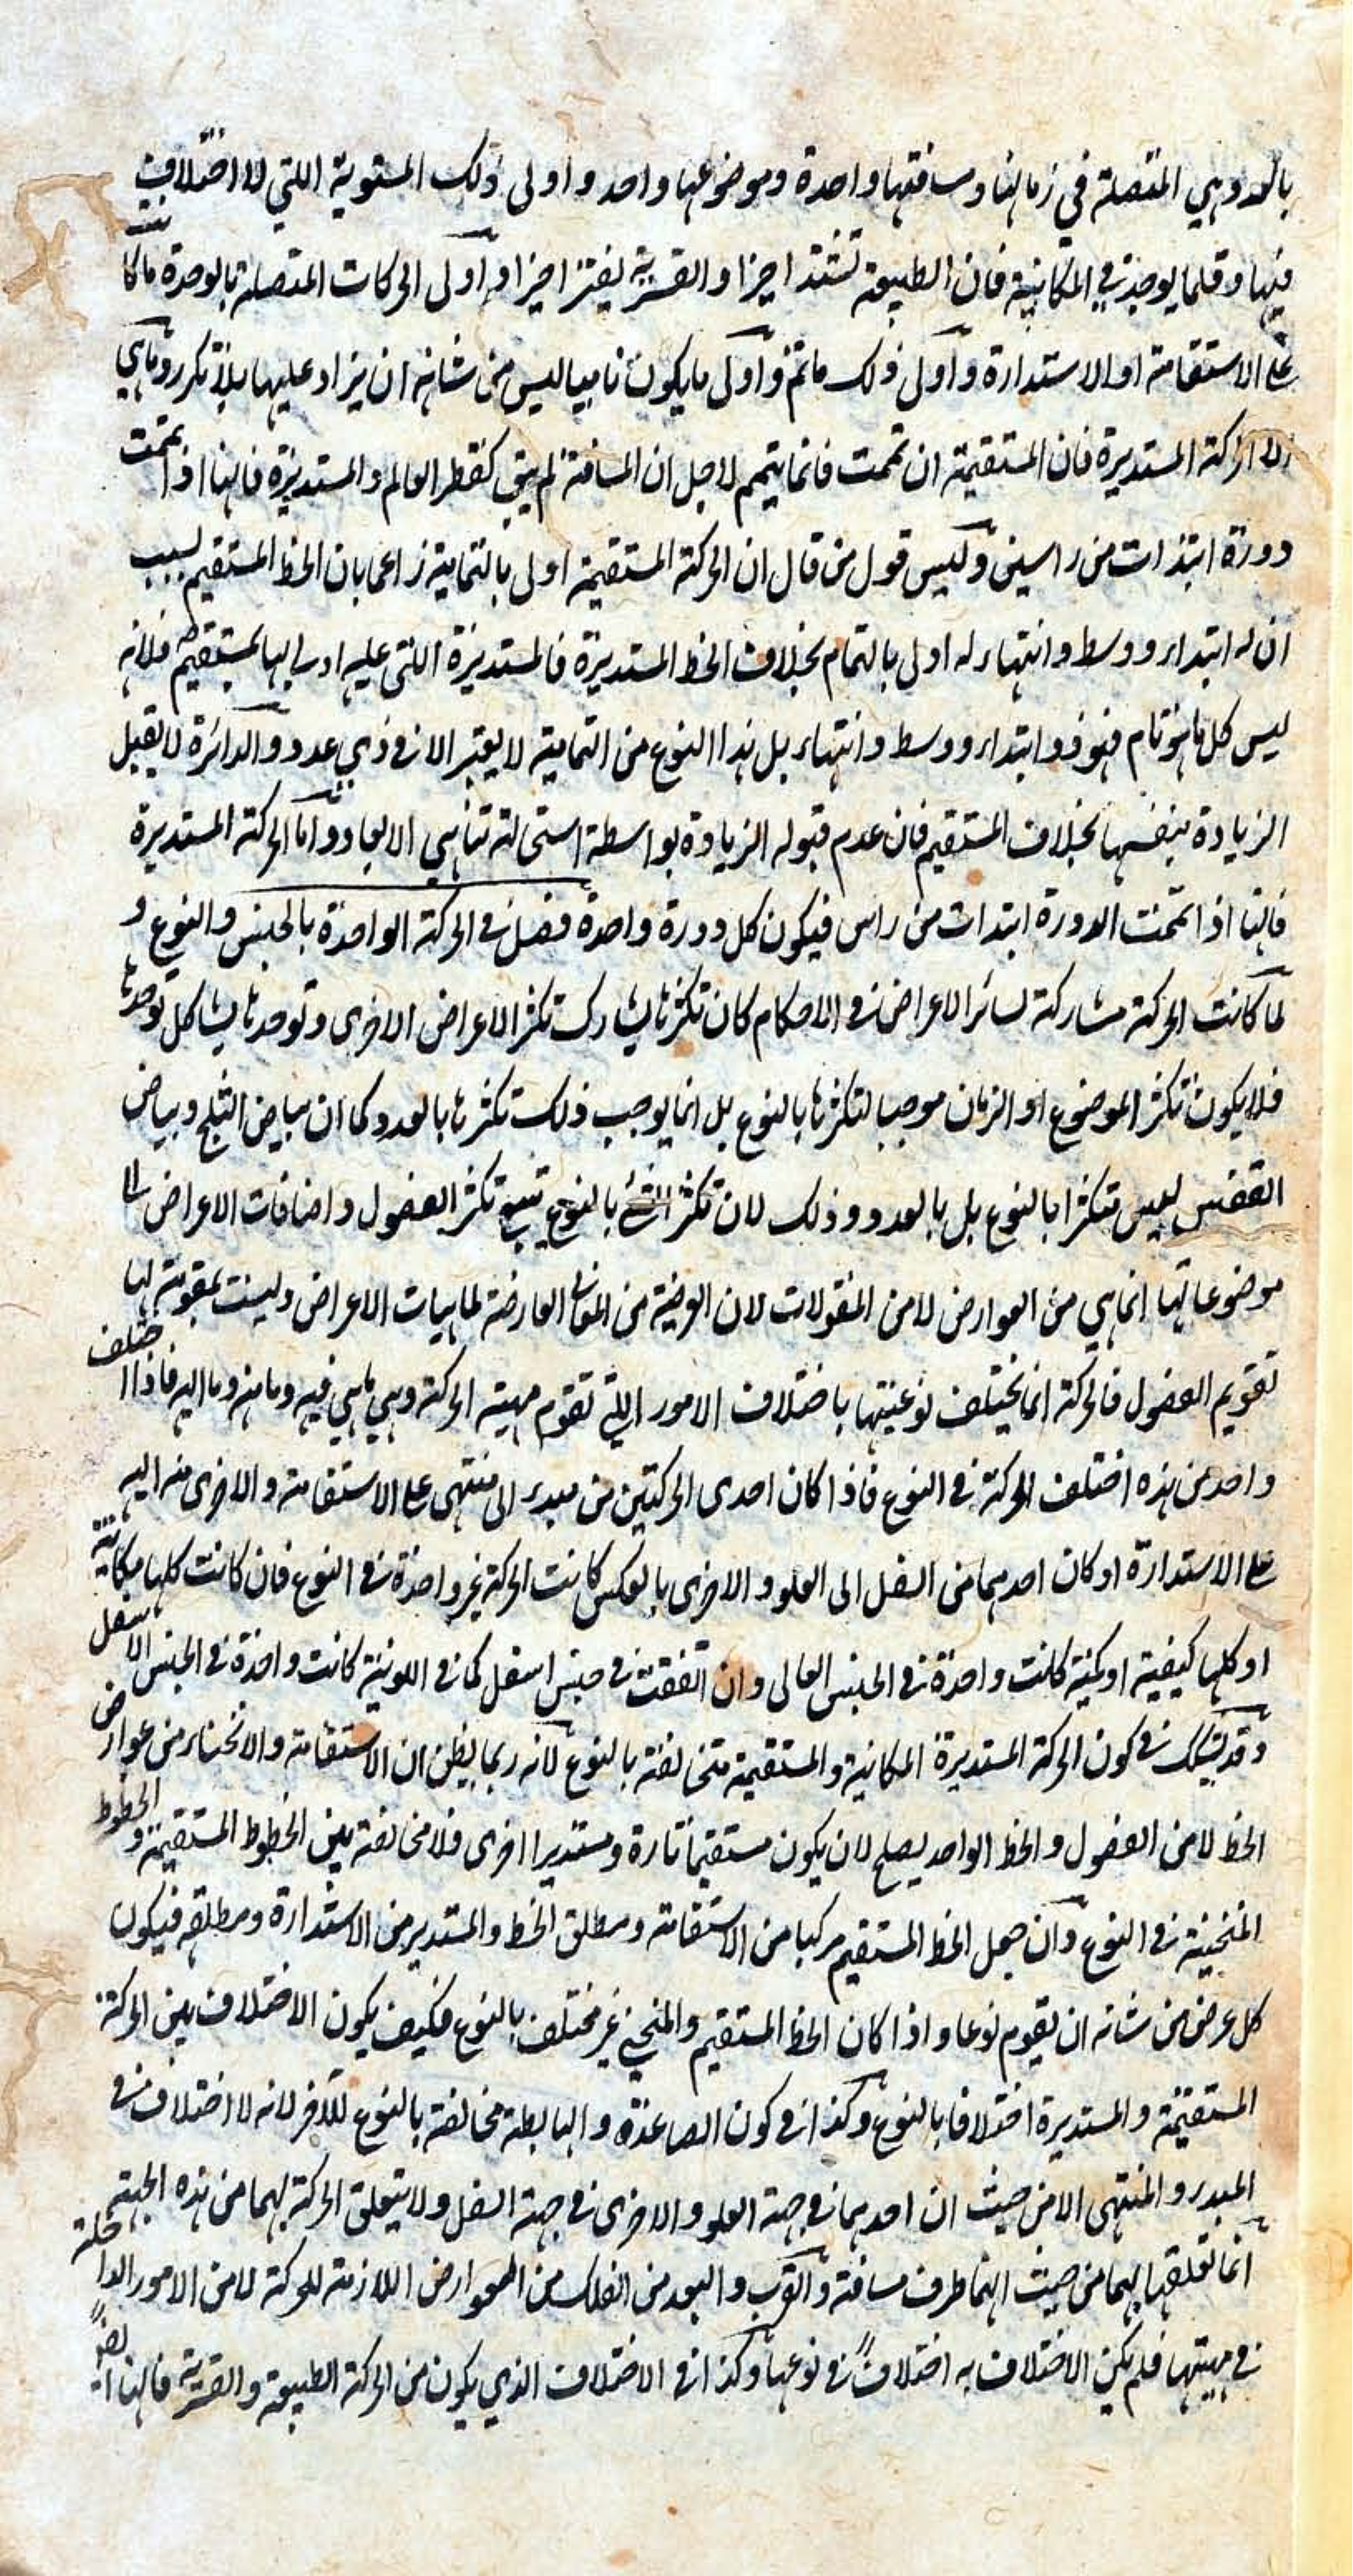 بالعدد وهي المتصلة في زمانها ومسافتها واحدة وموضوعها واحد واولى ذلك المستوية اللتي لا اختلاف
فيها وقلما يوجد في المكانية فان الطبيعة تشتد اخيرا والقسرية يفتر اخيرا واولى الحركات المتصلة بالوحدة ما كانت
على الاستقامة او الاستدارة واولى ذلك ما تم واولى ما يكون تاما ليس من شانه ان يزاد عليها بلا تكرر وما هي
الا الحركة المستديرة فان المستقيمة ان تمت فانما يتم لاجل ان المسافة لم يبق كقطر العالم والمستديرة فانها اذا تمت
دورة ابتدات من راس وليس قول من قال ان الحركة المستقيمة اولى بالتمامية زاعما بان الخط المستقيم بسبب
ان له ابتداء ووسط وانتهاء له اولى بالتمام بخلاف الخط المستديرة فالمستديرة اللتي عليه بمستقيم فلانه
ليس كل ما هو تام فهو ذو ابتداء ووسط وانتهاء بل هذا النوع من التمامية لا يعتبر الا في ذي عدد والدائرة لا يقبل
الزيادة بنفسها بخلاف المستقيم فان عدم قبوله الزيادة بواسطة استحالة تناهي الابعاد واما الحركة المستديرة
فانها اذا تمت الدورة ابتدات من راس فيكون كل دورة واحدة فصل في الحركة الواحدة بالجنس والنوع و
لما كانت الحركة مشاركة لسائر الاعراض في الاحكام كان تكثرها يشارك تكثر الاعراض الاخرى وتوحدها يشاكل توحدها
فلا يكون تكثر الموضوع او الزمان موجبا لتكثرها بالنوع بل انما يوجب ذلك تكثرها بالعدد كما ان بياض الثلج وبياض
الققنس ليس تكثرا بالنوع بل بالعدد وذلك لان تكثر الشئ بالنوع يتبع تكثر الفصول واضافات الاعراض الى
موضوعاتها انما هي من العوارض لا من المقولات لان العرضية من المعاني العارضة لماهيات الاعراض وليست بمقومة لها
تقويم الفصول فالحركة انما يختلف نوعيتها باختلاف الامور اللتي تقوم مهية الحركة وهي ما هي فيه وما منه وما اليه فاذا اختلف
واحد من هذه اختلف الحركة في النوع فاذا كان احدى الحركتين من مبدء الى منتهى على الاستقامة والاخرى منه اليه
على الاستدارة او كان احدهما من السفل الى العلو والاخرى بالعكس كانت الحركة غير واحدة في النوع فان كانت كلها مكانية
او كلها كيفية او كمية كانت واحدة في الجنس العالى وان اتفقت في جنس اسفل كما في اللونية كانت واحدة في الجنس الاسفل
وقد يشك في كون الحركة المستديرة المكانية والمستقيمة متخالفة بالنوع لانه ربما يظن ان الاستقامة والانحناء من عوارض
الخط لا من الفصول والخط الواحد يصلح لان يكون مستقيما تارة ومستديرا اخرى فلا مخالفة بين الخطوط المستقيمة والخطوط
المنحنية في النوع وان جعل الخط المستقيم مركبا من الاستقامة ومطلق الخط والمستدير من الاستدارة ومطلقه فيكون
كل عرض من شانه ان يقوم نوعا واذا كان الخط المستقيم والمنحني غير مختلف بالنوع فكيف يكون الاختلاف بين الحركة
المستقيمة والمستديرة اختلافا بالنوع وكذا في كون الصاعدة والهابطة مخالفة بالنوع للآخر لانه لا اختلاف في
المبدء والمنتهى الا من حيث ان احدهما في جهة العلو والاخرى في جهة السفل ولا يتعلق الحركة بهما من هذه الجهة
انما تعلقها بهما من حيث انهما طرف مسافة والقرب والبعد من الفلك من العوارض اللازمة للحركة لا من الامور الداخلة
في مهيتها فلم يكن الاختلاف به اختلافا في نوعها وكذا في الاختلاف الذي يكون من الحركة الطبيعة والقسرية فانها ايضا